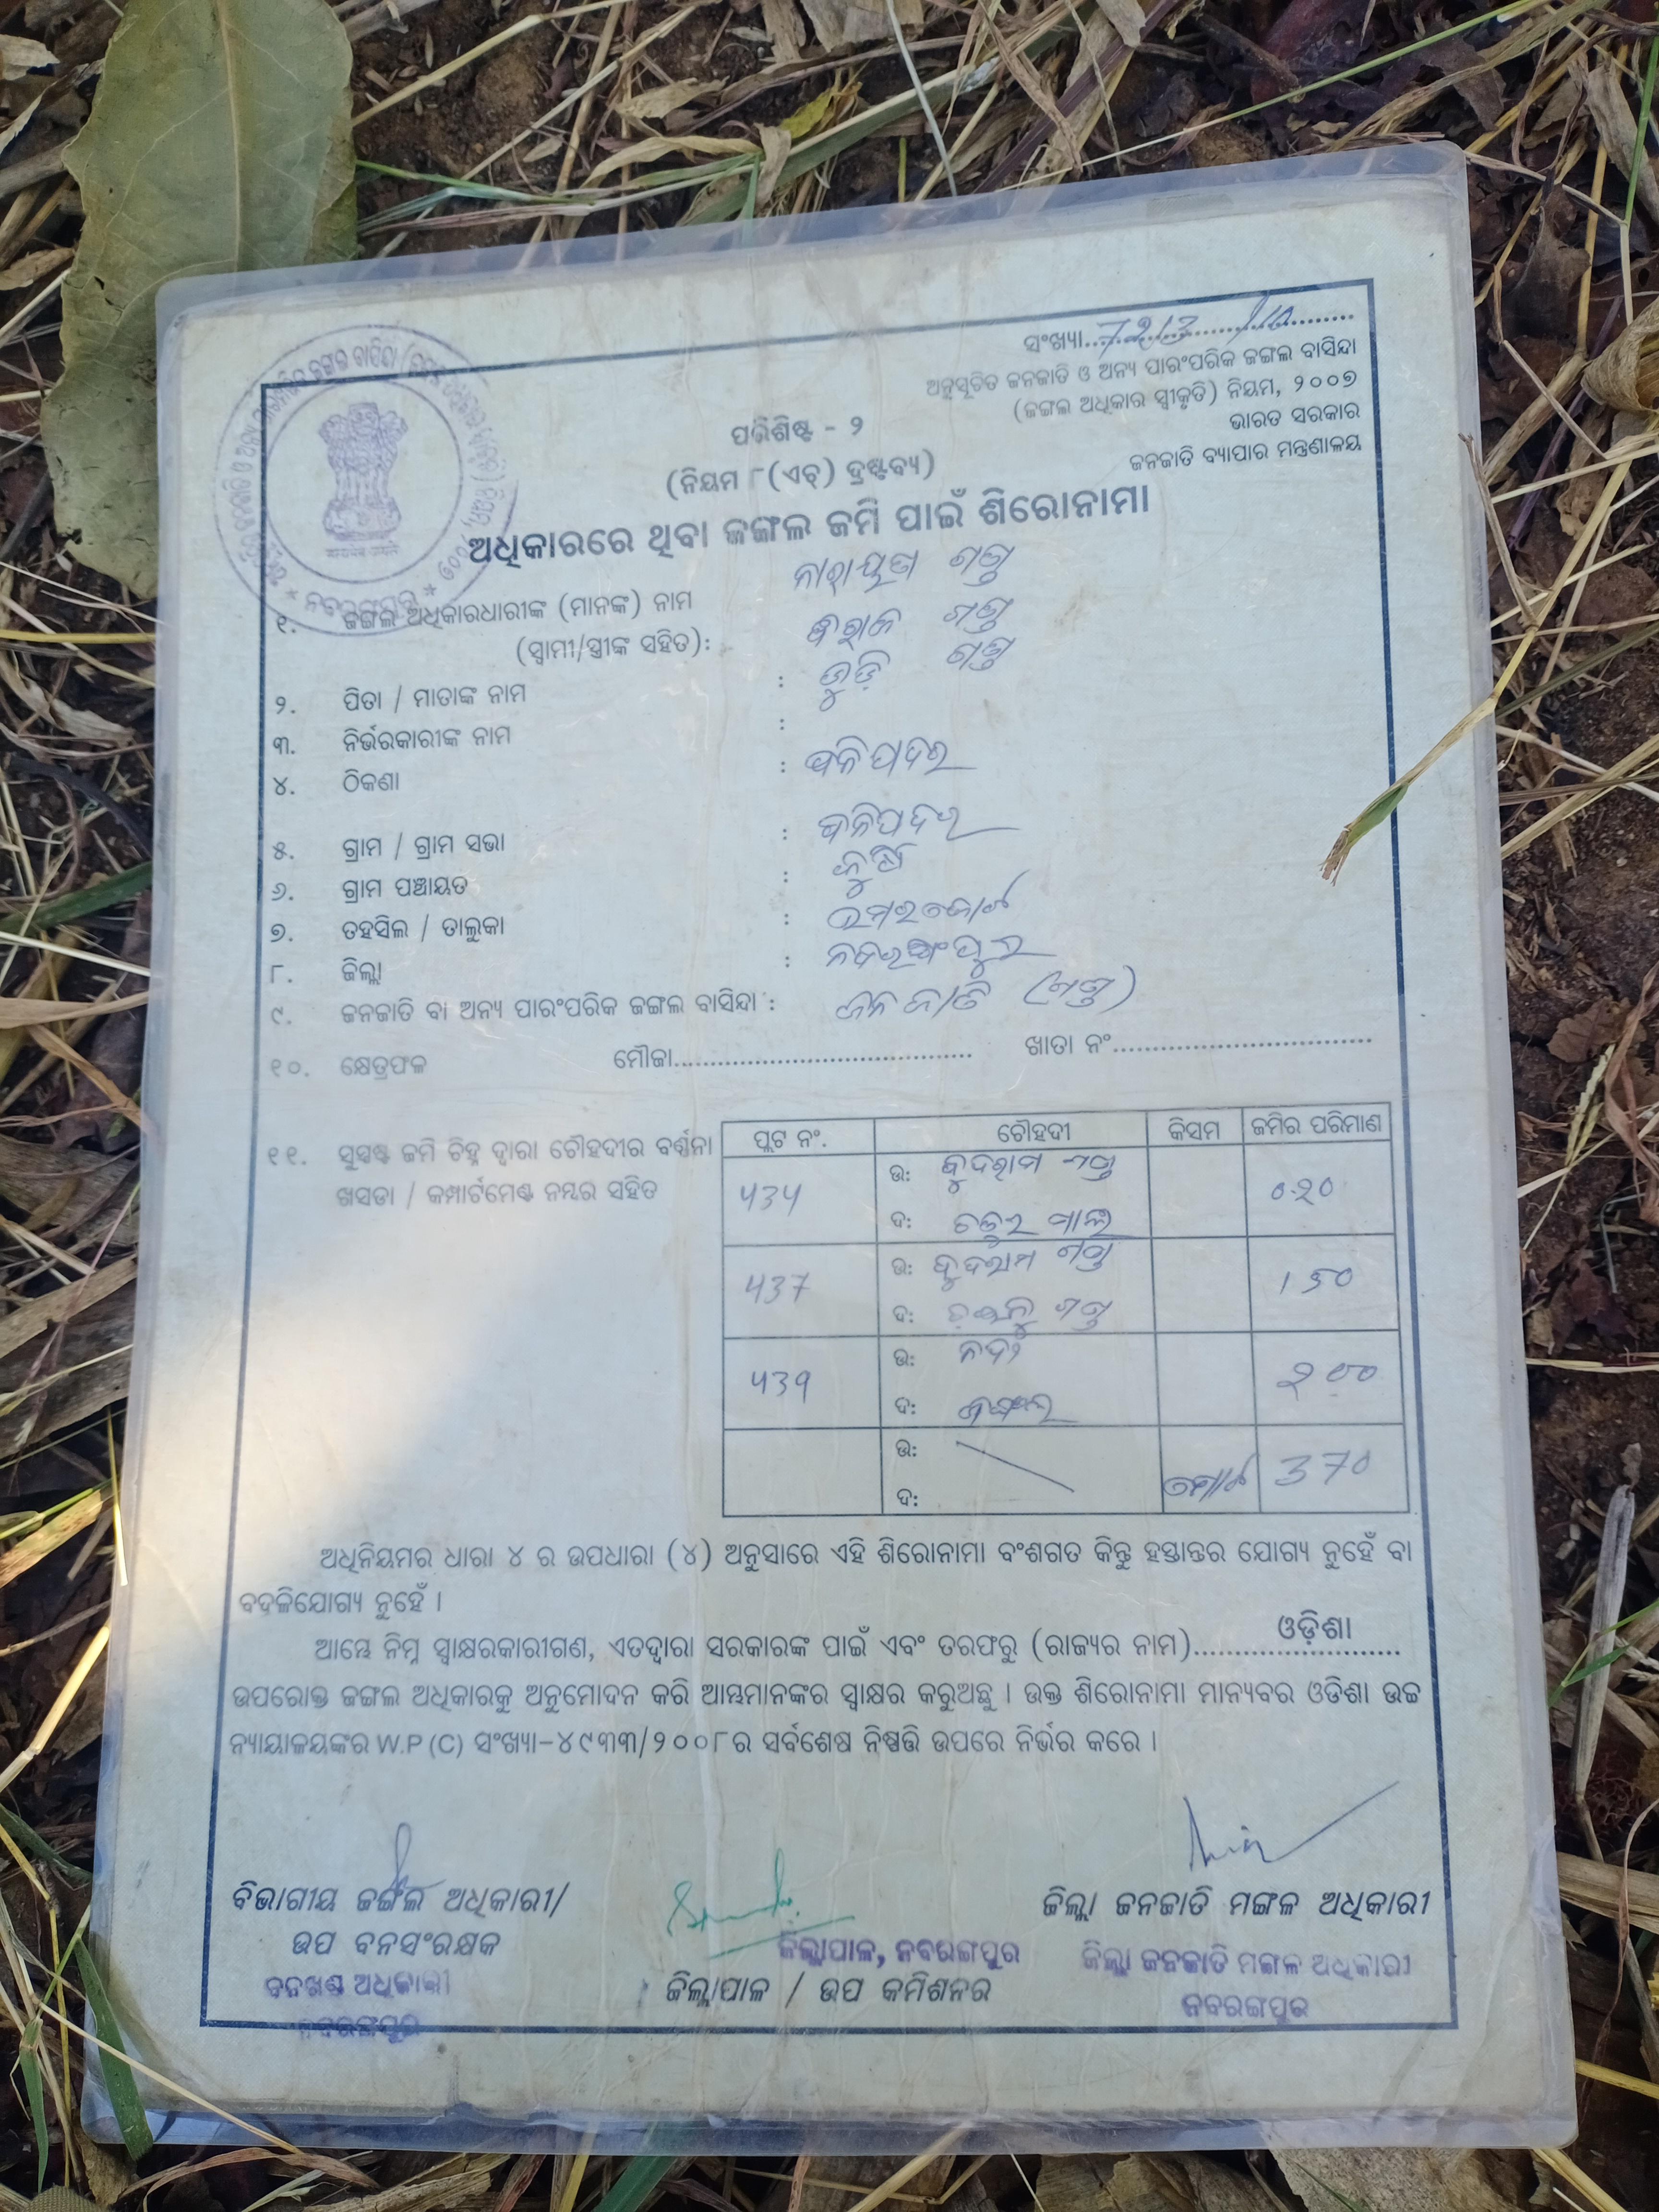 ସଂଖ୍ୟା..............................
ଅନୁସୂଚିତ ଜନଜାତି ଓ ଅନ୍ୟ ପାରଂପରିକ ଜଙ୍ଗଲ ବାସିନ୍ଦା
(ଜଙ୍ଗଲ ଅଧିକାର ସ୍ୱୀକୃତି) ନିୟମ, ୨୦୦୭
ଭାରତ ସରକାର
ଜନଜାତି ବ୍ୟାପାର ମନ୍ତ୍ରଣାଳୟ
ପରିଶିଷ୍ଟ - ୨
(ନିୟମ ୮(ଏଚ୍) ଦ୍ରଷ୍ଟବ୍ୟ)
ଅଧିକାରରେ ଥିବା ଜଙ୍ଗଲ ଜମି ପାଇଁ ଶିରୋନାମା
୧. ଜଙ୍ଗଲ ଅଧିକାରଧାରୀଙ୍କ (ମାନଙ୍କ) ନାମ ନାରାୟଣ ଗଣ୍ଡ
(ସ୍ୱାମୀ/ସ୍ତ୍ରୀଙ୍କ ସହିତ): ଗଣ୍ଡ
୨. ପିତା / ମାତାଙ୍କ ନାମ : ଗଣ୍ଡ
୩. ନିର୍ଭରକାରୀଙ୍କ ନାମ :
୪. ଠିକଣା : ବନିପଦର
୫. ଗ୍ରାମ / ଗ୍ରାମ ସଭା : ବନିପଦର
୬. ଗ୍ରାମ ପଞ୍ଚାୟତ :
୭. ତହସିଲ / ତାଲୁକା : ଉମରକୋଟ
୮. ଜିଲ୍ଲା : ନବରଙ୍ଗପୁର
୯. ଜନଜାତି ବା ଅନ୍ୟ ପାରଂପରିକ ଜଙ୍ଗଲ ବାସିନ୍ଦା : ଜନଜାତି (ଗଣ୍ଡ)
୧୦. କ୍ଷେତ୍ରଫଳ ମୌଜା..................................... ଖାତା ନଂ.................................
୧୧. ସୁସ୍ପଷ୍ଟ ଜମି ଚିହ୍ନ ଦ୍ୱାରା ଚୌହଦୀର ବର୍ଣ୍ଣନା
ଖସଡା / କମ୍ପାର୍ଟମେଣ୍ଟ ନମ୍ବର ସହିତ
ପ୍ଲଟ ନଂ. ଚୌହଦୀ କିସମ ଜମିର ପରିମାଣ
ଉ: ବୁଦରାମ ଗଣ୍ଡ
ଦ: 0.20
437 ଉ: ବୁଦରାମ ଗଣ୍ଡ
ଦ: ଗଣ୍ଡ 150
439 ଉ: ନଦୀ
ଦ: ଜଙ୍ଗଲ 200
ଉ:
ଦ: ମୋଟ 370
ଅଧିନିୟମର ଧାରା ୪ ର ଉପଧାରା (୪) ଅନୁସାରେ ଏହି ଶିରୋନାମା ବଂଶଗତ କିନ୍ତୁ ହସ୍ତାନ୍ତର ଯୋଗ୍ୟ ନୁହେଁ ବା
ବଦଳିଯୋଗ୍ୟ ନୁହେଁ ।
ଆମ୍ଭେ ନିମ୍ନ ସ୍ୱାକ୍ଷରକାରୀଗଣ, ଏତଦ୍ୱାରା ସରକାରଙ୍କ ପାଇଁ ଏବଂ ତରଫରୁ (ରାଜ୍ୟର ନାମ)..........ଓଡ଼ିଶା..........
ଉପରୋକ୍ତ ଜଙ୍ଗଲ ଅଧିକାରକୁ ଅନୁମୋଦନ କରି ଆମ୍ଭମାନଙ୍କର ସ୍ୱାକ୍ଷର କରୁଅଛୁ । ଉକ୍ତ ଶିରୋନାମା ମାନ୍ୟବର ଓଡିଶା ଉଚ୍ଚ
ନ୍ୟାୟାଳୟଙ୍କର W.P (C) ସଂଖ୍ୟା-୪୯୩୩/୨୦୦୮ର ସର୍ବଶେଷ ନିଷ୍ପତ୍ତି ଉପରେ ନିର୍ଭର କରେ ।
ବିଭାଗୀୟ ଜଙ୍ଗଲ ଅଧିକାରୀ/
ଉପ ବନସଂରକ୍ଷକ
ବନଖଣ୍ଡ ଅଧିକାରୀ
ନବରଙ୍ଗପୁର
ଜିଲ୍ଲାପାଳ, ନବରଙ୍ଗପୁର
ଜିଲ୍ଲାପାଳ / ଉପ କମିଶନର
ଜିଲ୍ଲା ଜନଜାତି ମଙ୍ଗଳ ଅଧିକାରୀ
ଜିଲ୍ଲା ଜନଜାତି ମଙ୍ଗଳ ଅଧିକାରୀ
ନବରଙ୍ଗପୁର